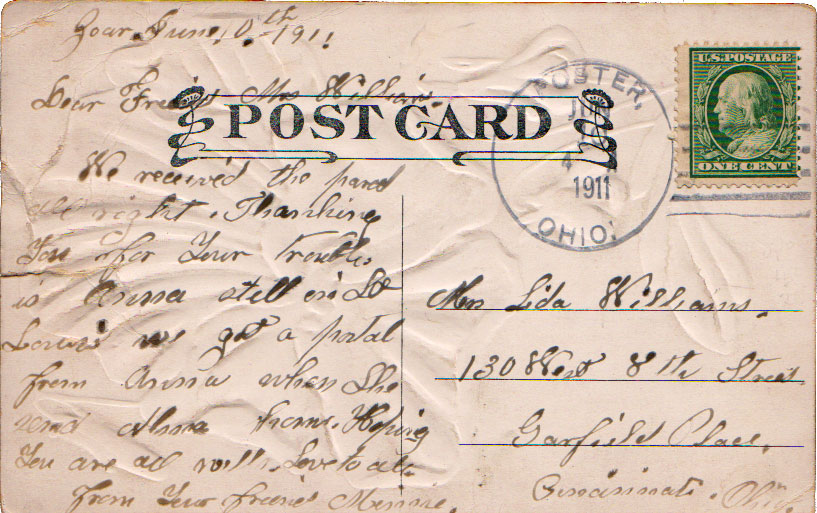 Zoar, June, 10th 1911.
Dear Friend Mrs Williams.
POST CARD
We received the parcel
all right. Thanking
You for Your trouble.
is Anna still in St
Louis we got a postal
from Anna when She
send Alma home. Hoping
You are all well. Love to all
From Your friend Minnie.
FOSTER,
1911
OHIO.
U.S. POSTAGE
ONE CENT
Mrs Lida Williams.
130 West 8th Street
Garfield Place.
Cincinnati. Ohio.